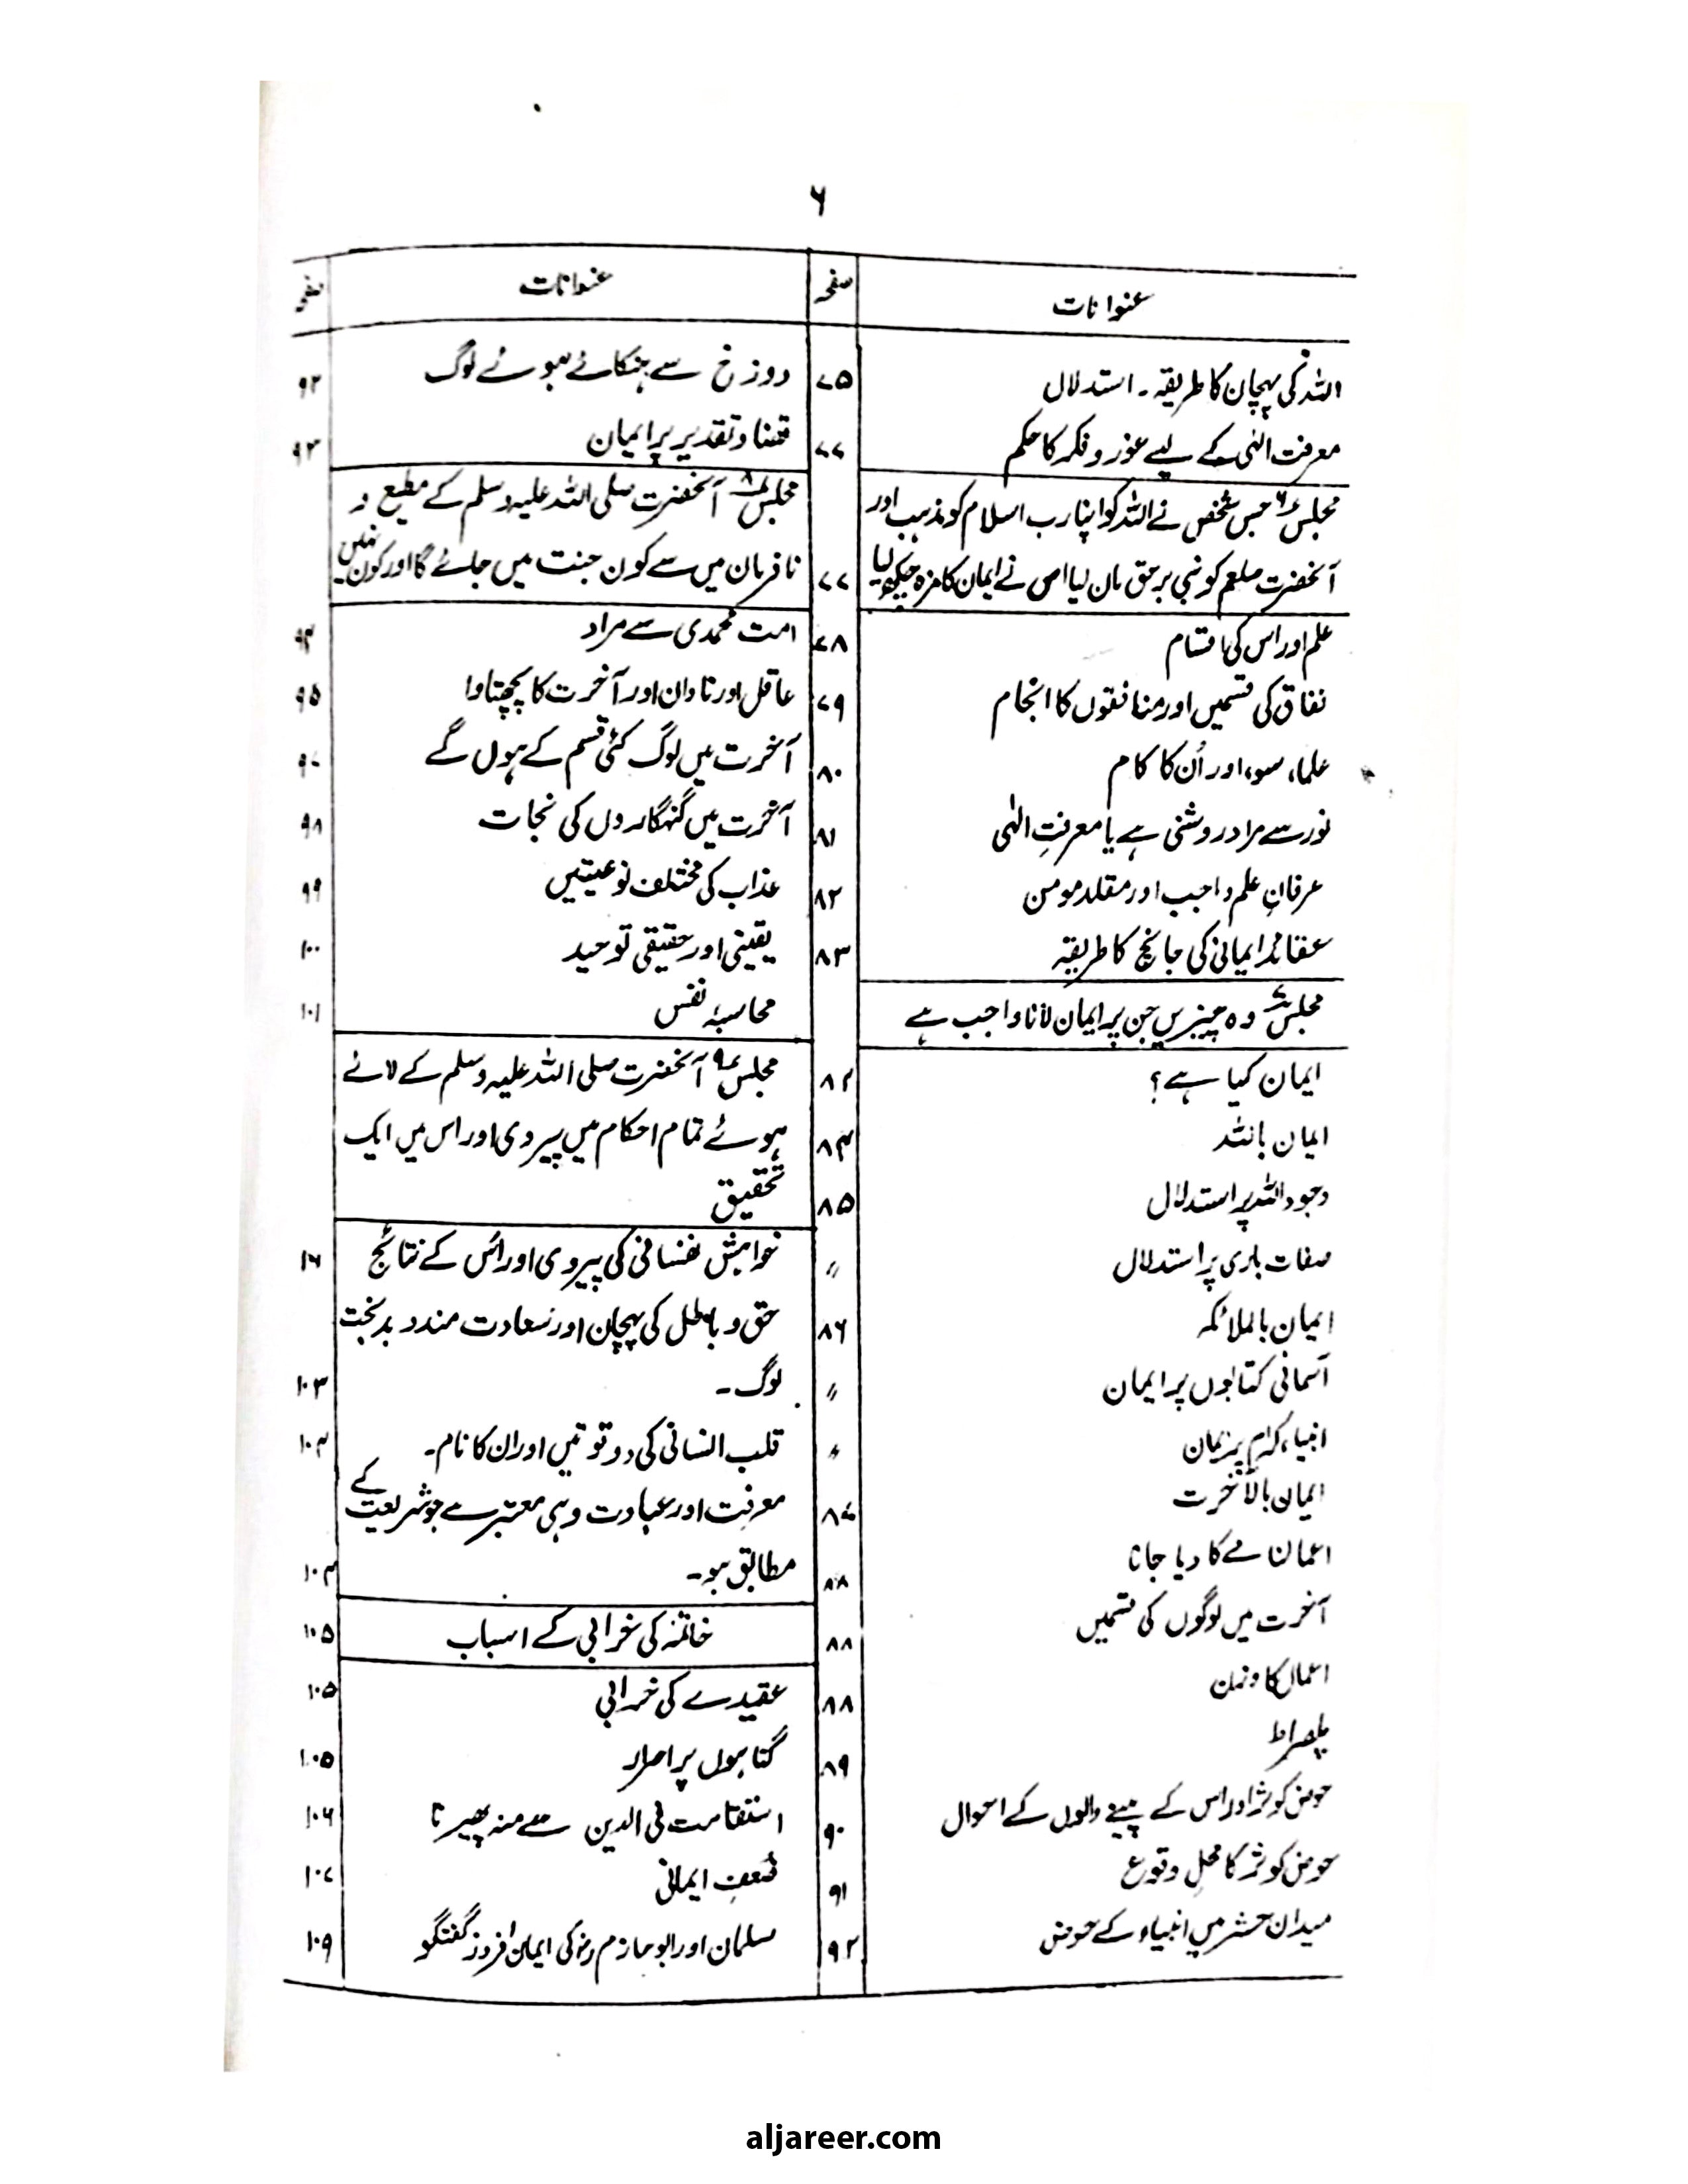 ۶
عنوانات صفحہ
اللہ کی پہچان کا طریقہ ۔ استدلال ۷۵
معرفت الٰہی کے لیے غور و فکر کا حکم ۷۷
مجلس ۶ جس شخص نے اللہ کو اپنا رب اسلام کو مذہب اور
آنحضرت صلعم کو نبی برحق مان لیا اس نے ایمان کا مزہ چکھ لیا ۷۷
علم اور اس کی اقسام ۷۸
نفاق کی قسمیں اور منافقوں کا انجام ۷۹
علماء سوء اور اُن کا کام ۸۰
نور سے مراد روشنی ہے یا معرفتِ الٰہی ۸۱
عرفانِ علم واجب اور مقلد مومن ۸۲
عقائد ایمانی کی جانچ کا طریقہ ۸۳
مجلس ۷ وہ چیزیں جن پر ایمان لانا واجب ہے
ایمان کیا ہے؟ ۸۴
ایمان باللہ ۸۴
وجود اللہ پر استدلال ۸۵
صفات باری پر استدلال 〃
ایمان بالملائکہ ۸۶
آسمانی کتابوں پر ایمان 〃
انبیاء کرام پر ایمان 〃
ایمان بالآخرت ۸۷
اعمال نامے کا دیا جانا ۸۸
آخرت میں لوگوں کی قسمیں ۸۸
اعمال کا وزن ۸۸
پلصراط ۸۹
حوض کوثر اور اس کے پینے والوں کے احوال ۹۰
حوض کوثر کا محلِ وقوع ۹۱
میدان حشر میں انبیاء کے حوض ۹۲
عنوانات صفحہ
دوزخ سے ہنکائے ہوئے لوگ ۹۲
قضا و تقدیر پر ایمان ۹۳
مجلس ۸ آنحضرت صلی اللہ علیہ وسلم کے مطیع و
نافرمان میں سے کون جنت میں جائے گا اور کون نہیں
امت محمدی سے مراد ۹۴
عاقل اور نادان اور آخرت کا پچھتاوا ۹۵
آخرت میں لوگ کئی قسم کے ہوں گے ۹۷
آخرت میں گنہگاروں کی نجات ۹۸
عذاب کی مختلف نوعیتیں ۹۹
یقینی اور حقیقی توحید ۱۰۰
محاسبۂ نفس ۱۰۱
مجلس ۹ آنحضرت صلی اللہ علیہ وسلم کے لائے
ہوئے تمام احکام میں پیروی اور اس میں ایک
تحقیق
خواہش نفسانی کی پیروی اور اُس کے نتائج
حق و باطل کی پہچان اور سعادت مند و بدبخت
لوگ ۔ ۱۰۳
قلب انسانی کی دو قوتیں اور ان کا نام ۔ ۱۰۳
معرفت اور عبادت وہی معتبر ہے جو شریعت کے
مطابق ہو ۔ ۱۰۴
خاتمہ کی خرابی کے اسباب ۱۰۵
عقیدے کی خرابی ۱۰۵
گناہوں پر اصرار ۱۰۵
استقامت فی الدین سے منہ پھیرنا ۱۰۶
ضُعفِ ایمانی ۱۰۷
سلمان اور ابو حازم رح کی ایمان افروز گفتگو ۱۰۹
aljareer.com